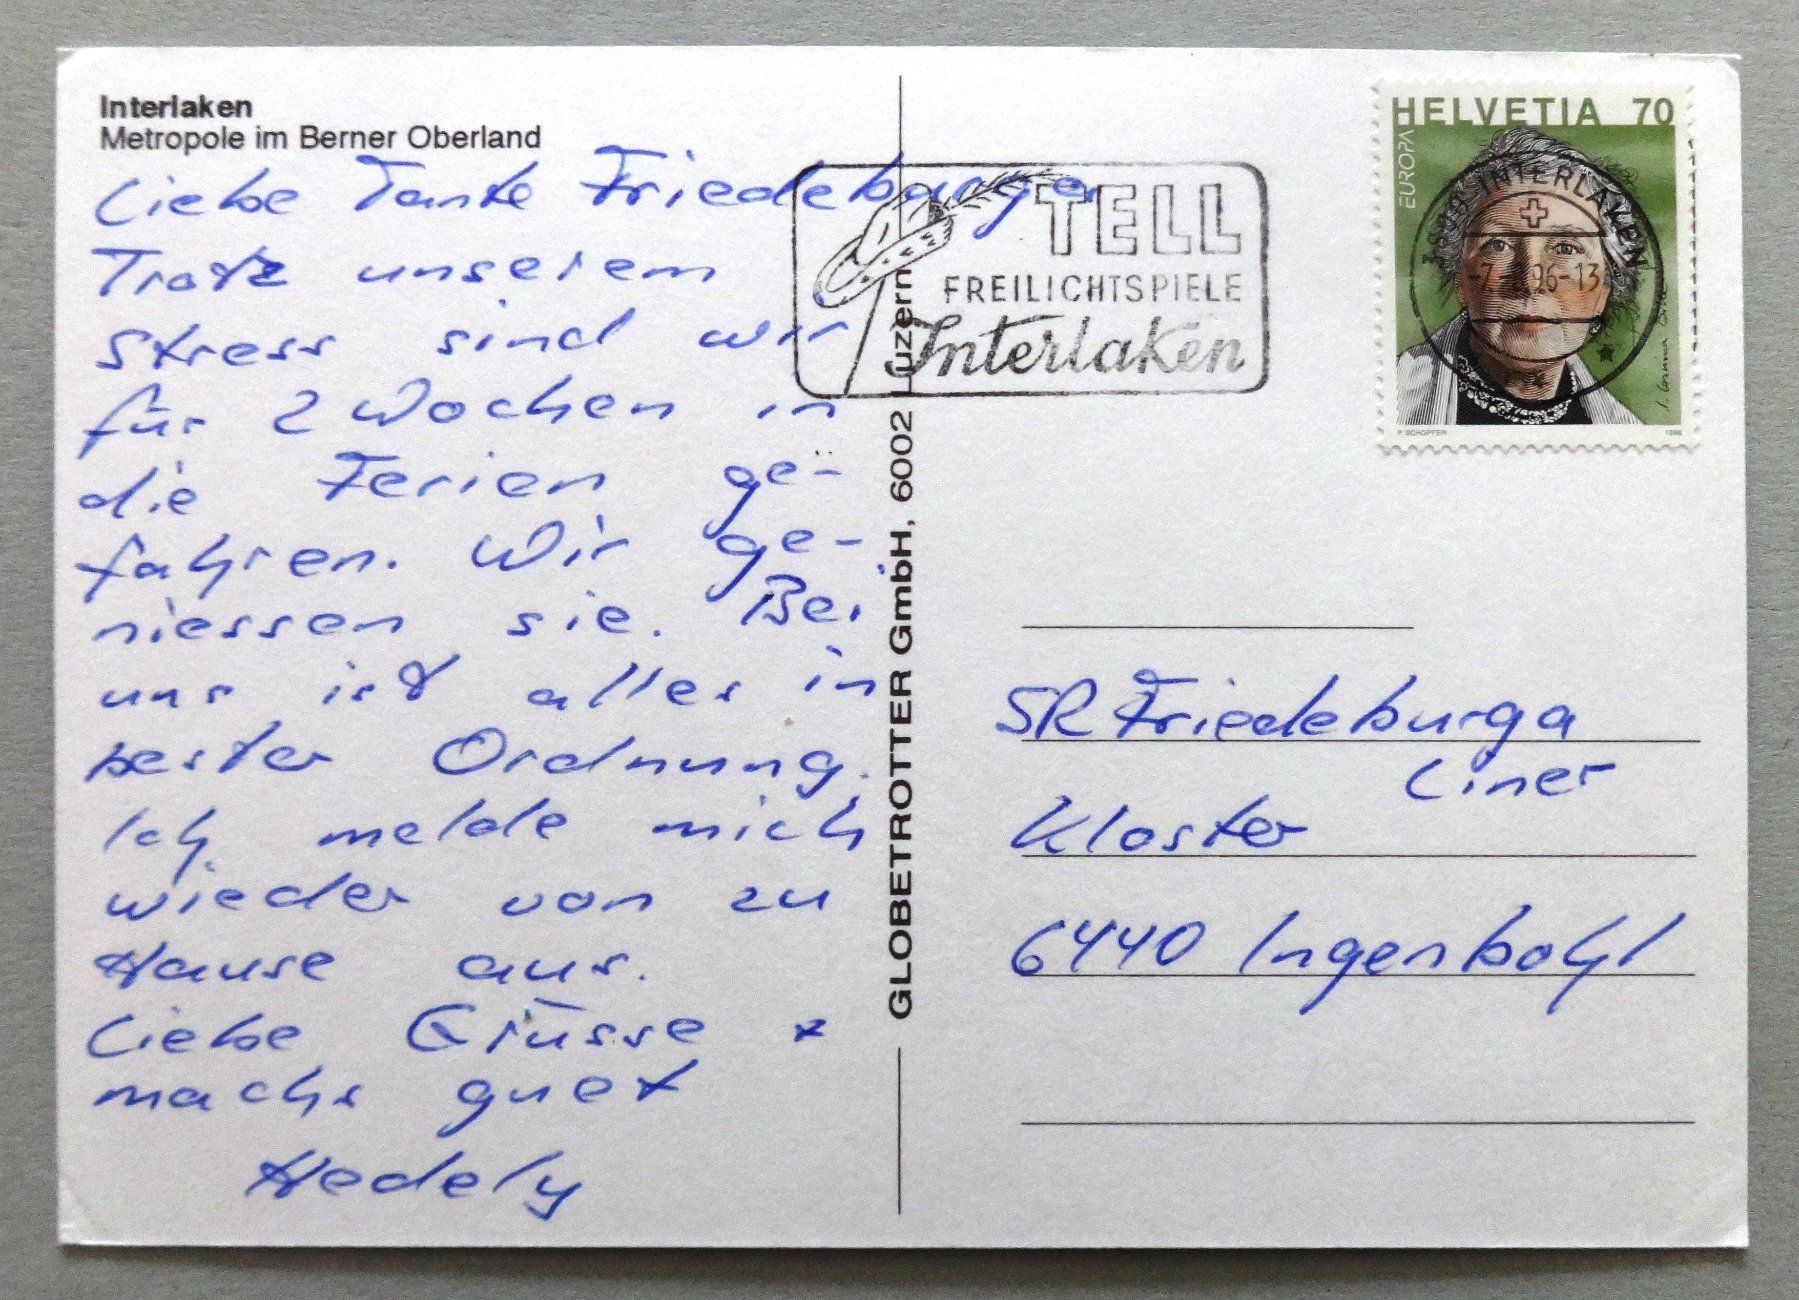 Interlaken
Metropole im Berner Oberland
Liebe Tante Friedeburga
Trotz unserem
Stress sind wir
für 2 Wochen in
die Ferien ge-
fahren. Wir ge-
niessen sie. Bei
uns ist alles in
bester Ordnung.
Ich melde mich
wieder von zu
Hause aus.
Liebe Grüsse +
machs guet
Hedely
GLOBETROTTER GmbH, 6002 Luzern
TELL
FREILICHTSPIELE
Interlaken
HELVETIA 70
EUROPA
INTERLAKEN
P. SCHOPFER
1996
SR Friedeburga
Liner
Kloster
6440 Ingenbohl